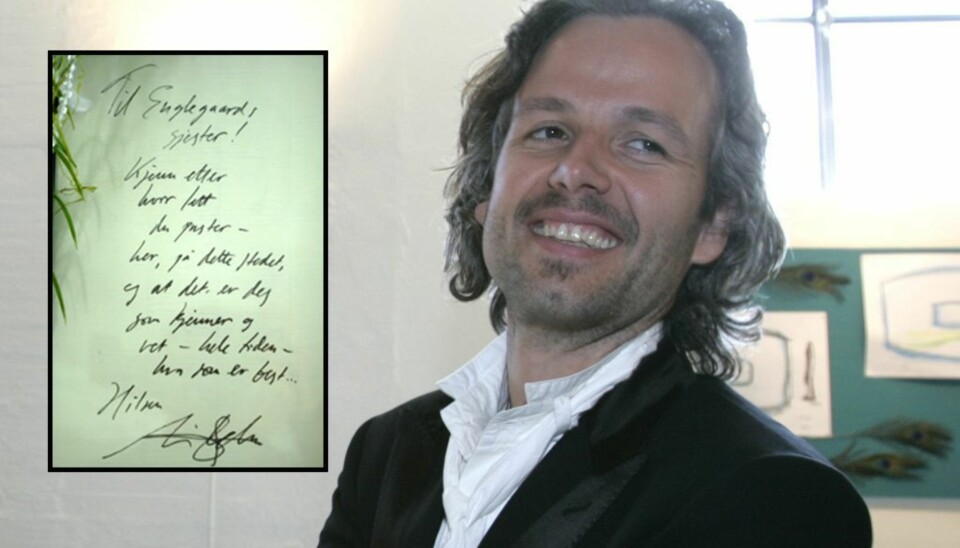 Til Englegaards
gjester!
Kjenn etter
hvor lett
du puster –
her, på dette stedet,
og at det er deg
som kjenner og
vet – hele tiden –
hva som er best...
Hilsen